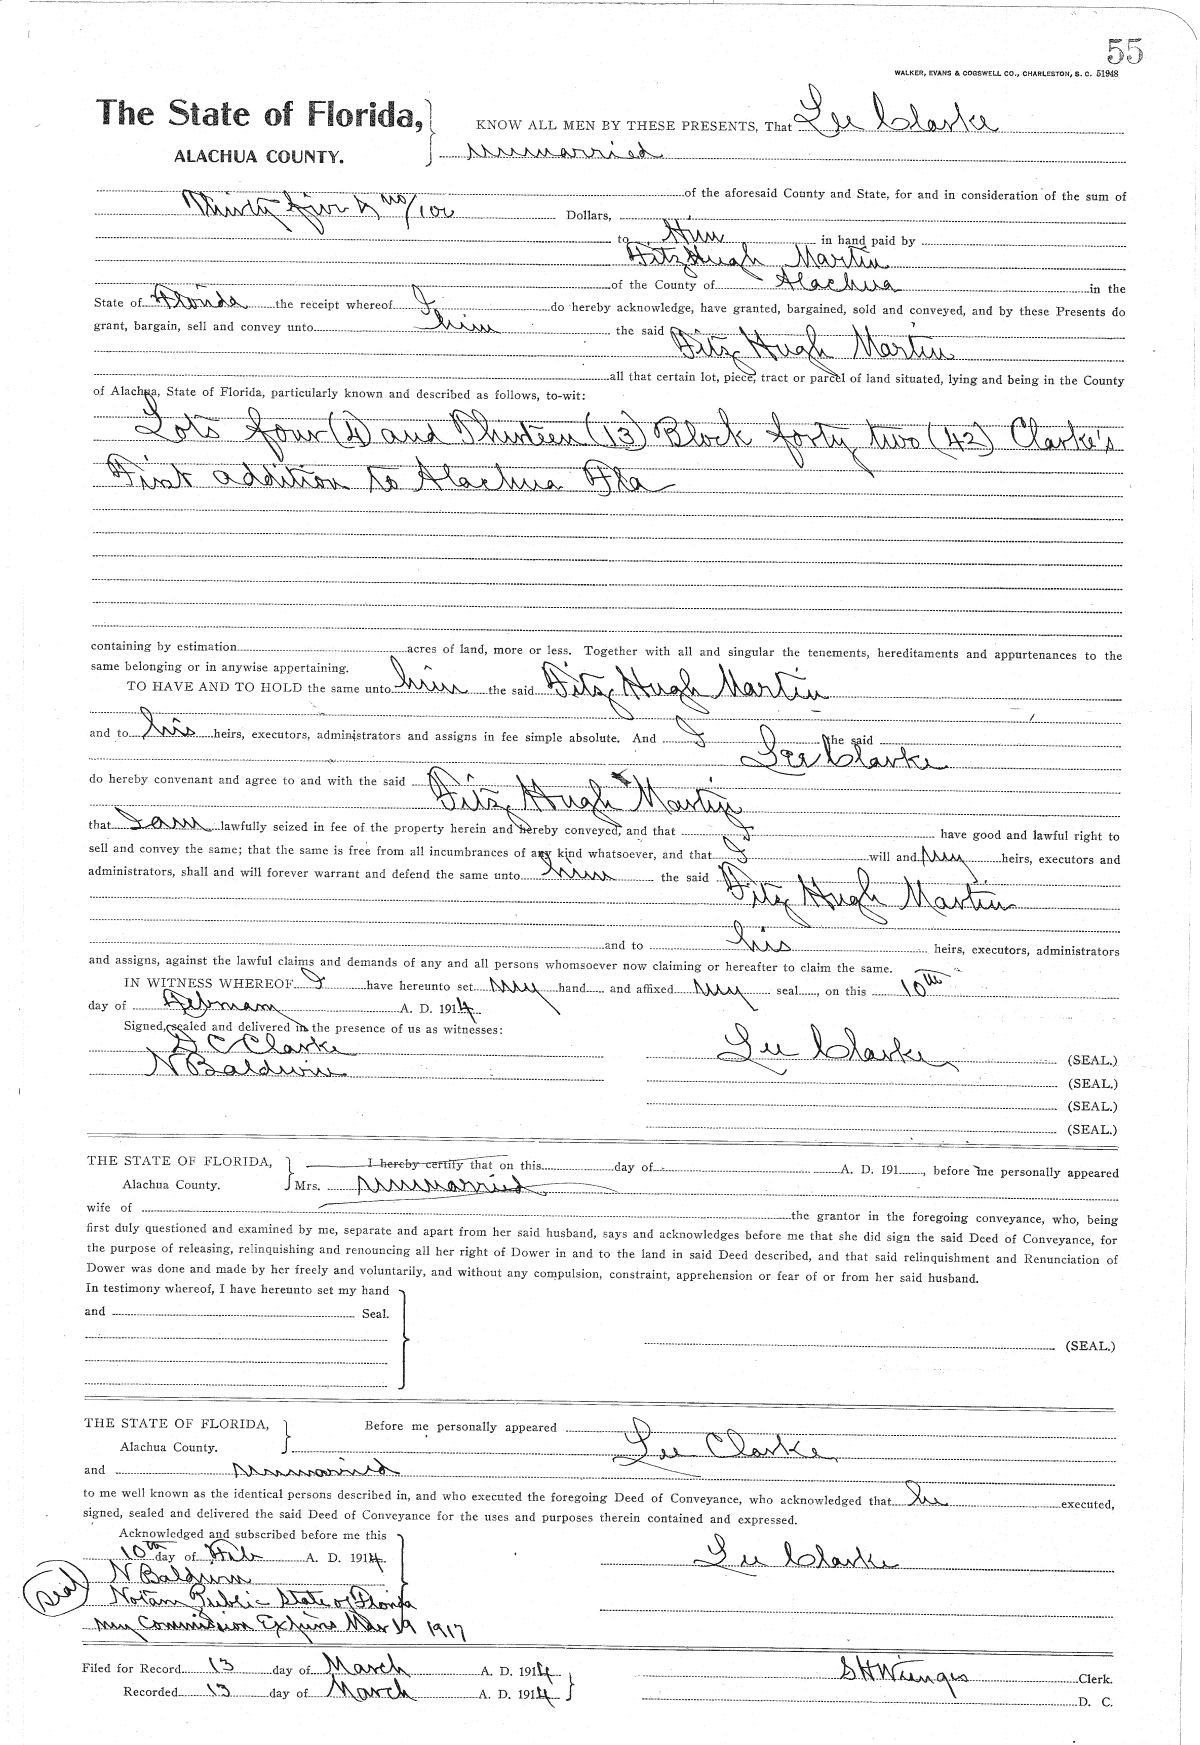 55
WALKER, EVANS & COGSWELL CO., CHARLESTON, S. C. 51948
The State of Florida, KNOW ALL MEN BY THESE PRESENTS, That Lee Clarke
ALACHUA COUNTY. unmarried
of the aforesaid County and State, for and in consideration of the sum of
Thirty five & no/100 Dollars,
to Him in hand paid by
Fitz Hugh Martin
of the County of Alachua in the
State of Florida the receipt whereof I do hereby acknowledge, have granted, bargained, sold and conveyed, and by these Presents do
grant, bargain, sell and convey unto him the said Fitz Hugh Martin
all that certain lot, piece, tract or parcel of land situated, lying and being in the County
of Alachua, State of Florida, particularly known and described as follows, to-wit:
Lots four (4) and Thirteen (13) Block forty two (42) Clarke's
First addition to Alachua Fla
containing by estimation acres of land, more or less. Together with all and singular the tenements, hereditaments and appurtenances to the
same belonging or in anywise appertaining.
TO HAVE AND TO HOLD the same unto him the said Fitz Hugh Martin
and to his heirs, executors, administrators and assigns in fee simple absolute. And I the said
Lee Clarke
do hereby convenant and agree to and with the said Fitz Hugh Martin
that I am lawfully seized in fee of the property herein and hereby conveyed, and that I have good and lawful right to
sell and convey the same; that the same is free from all incumbrances of any kind whatsoever, and that I will and my heirs, executors and
administrators, shall and will forever warrant and defend the same unto him the said Fitz Hugh Martin
and to his heirs, executors, administrators
and assigns, against the lawful claims and demands of any and all persons whomsoever now claiming or hereafter to claim the same.
IN WITNESS WHEREOF I have hereunto set my hand and affixed my seal, on this 10th
day of February A. D. 1914.
Signed, sealed and delivered in the presence of us as witnesses:
D C Clarke
N Baldwin
Lee Clarke (SEAL.)
(SEAL.)
(SEAL.)
(SEAL.)
THE STATE OF FLORIDA, I hereby certify that on this day of A. D. 191, before me personally appeared
Alachua County. Mrs. unmarried
wife of the grantor in the foregoing conveyance, who, being
first duly questioned and examined by me, separate and apart from her said husband, says and acknowledges before me that she did sign the said Deed of Conveyance, for
the purpose of releasing, relinquishing and renouncing all her right of Dower in and to the land in said Deed described, and that said relinquishment and Renunciation of
Dower was done and made by her freely and voluntarily, and without any compulsion, constraint, apprehension or fear of or from her said husband.
In testimony whereof, I have hereunto set my hand
and Seal.
(SEAL.)
THE STATE OF FLORIDA, Before me personally appeared
Alachua County. Lee Clarke
and unmarried
to me well known as the identical persons described in, and who executed the foregoing Deed of Conveyance, who acknowledged that he executed,
signed, sealed and delivered the said Deed of Conveyance for the uses and purposes therein contained and expressed.
Acknowledged and subscribed before me this
10th day of Feb A. D. 1914. Lee Clarke
(seal) N Baldwin
Notary Public State of Florida
my Commission Expires Mar 19 1917
Filed for Record 13 day of March A. D. 1914 S H Wienges Clerk.
Recorded 13 day of March A. D. 1914 D. C.